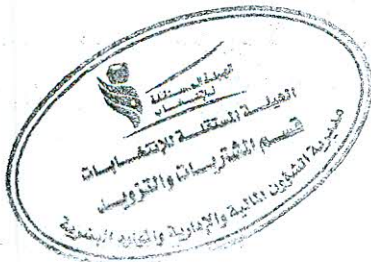 الهيئة المستقلة
للإنتخاب
الهيئة المستقلة للإنتخابات
قسم المشتريات والتزويد
مديرية الشؤون المالية والإدارية والموارد البشرية